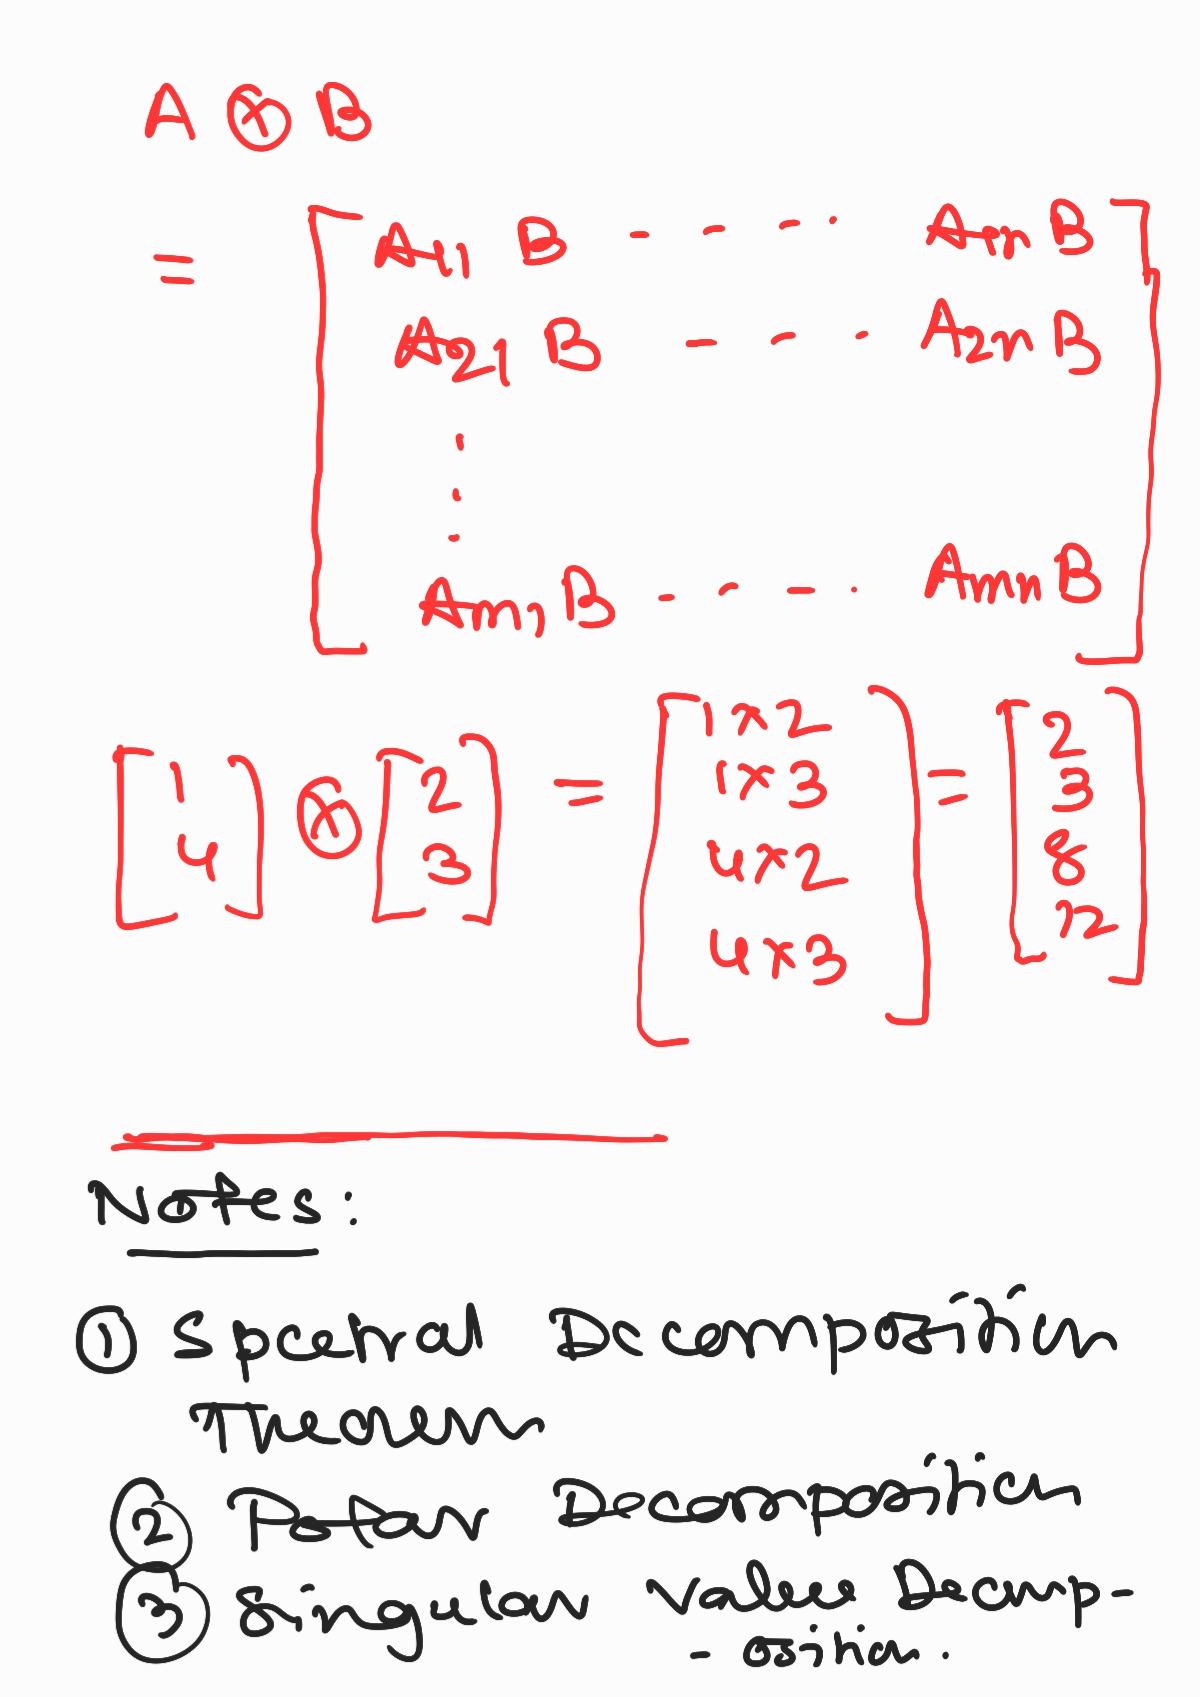 A ⊗ B
= [ A11 B - - - · A1n B ]
A21 B - - · A2n B
·
·
·
Am1 B - - - · Amn B
[1 4] ⊗ [2 3] = [1×2 1×3 4×2 4×3] = [2 3 8 12]
Notes:
① Spectral Decomposition
Theorem
② Polar Decomposition
③ Singular Value Decomp-
- osition.